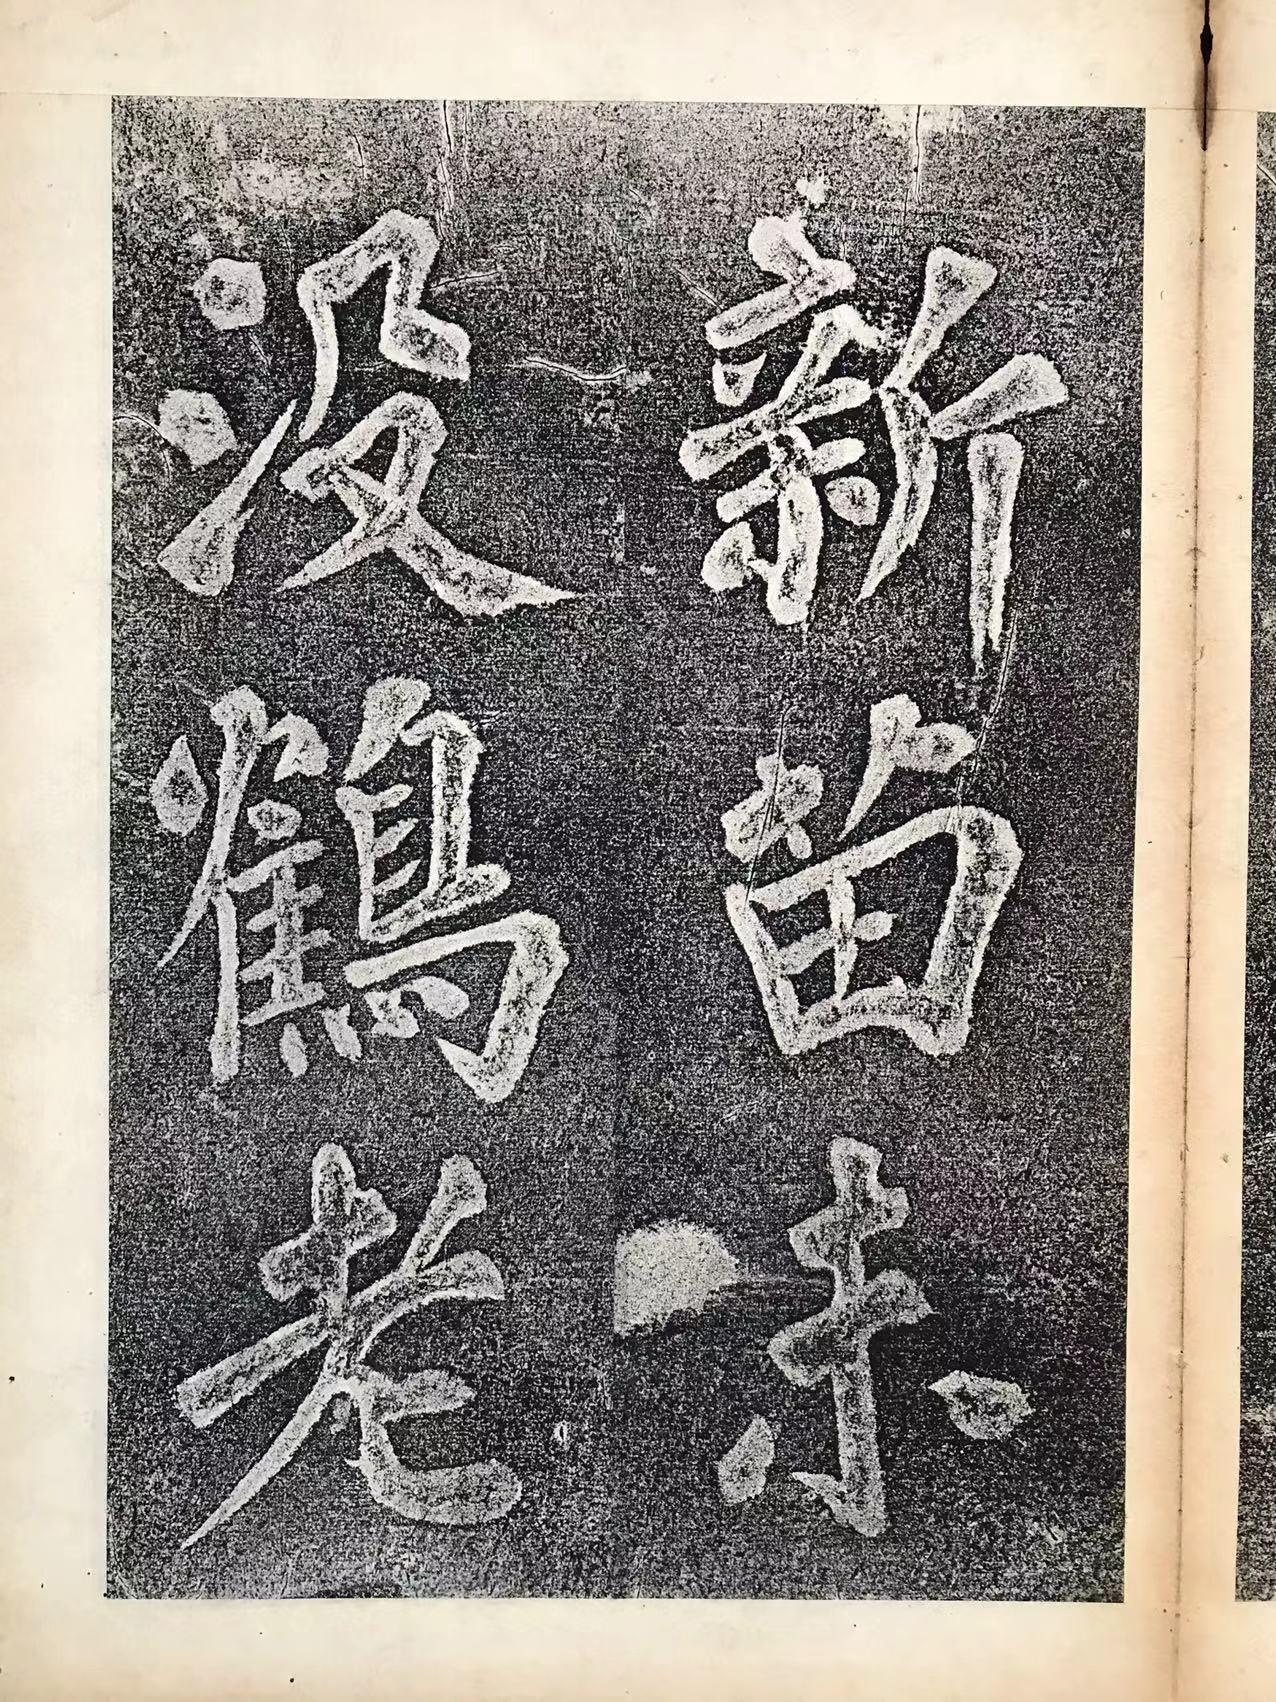 新苗未
没鶴老